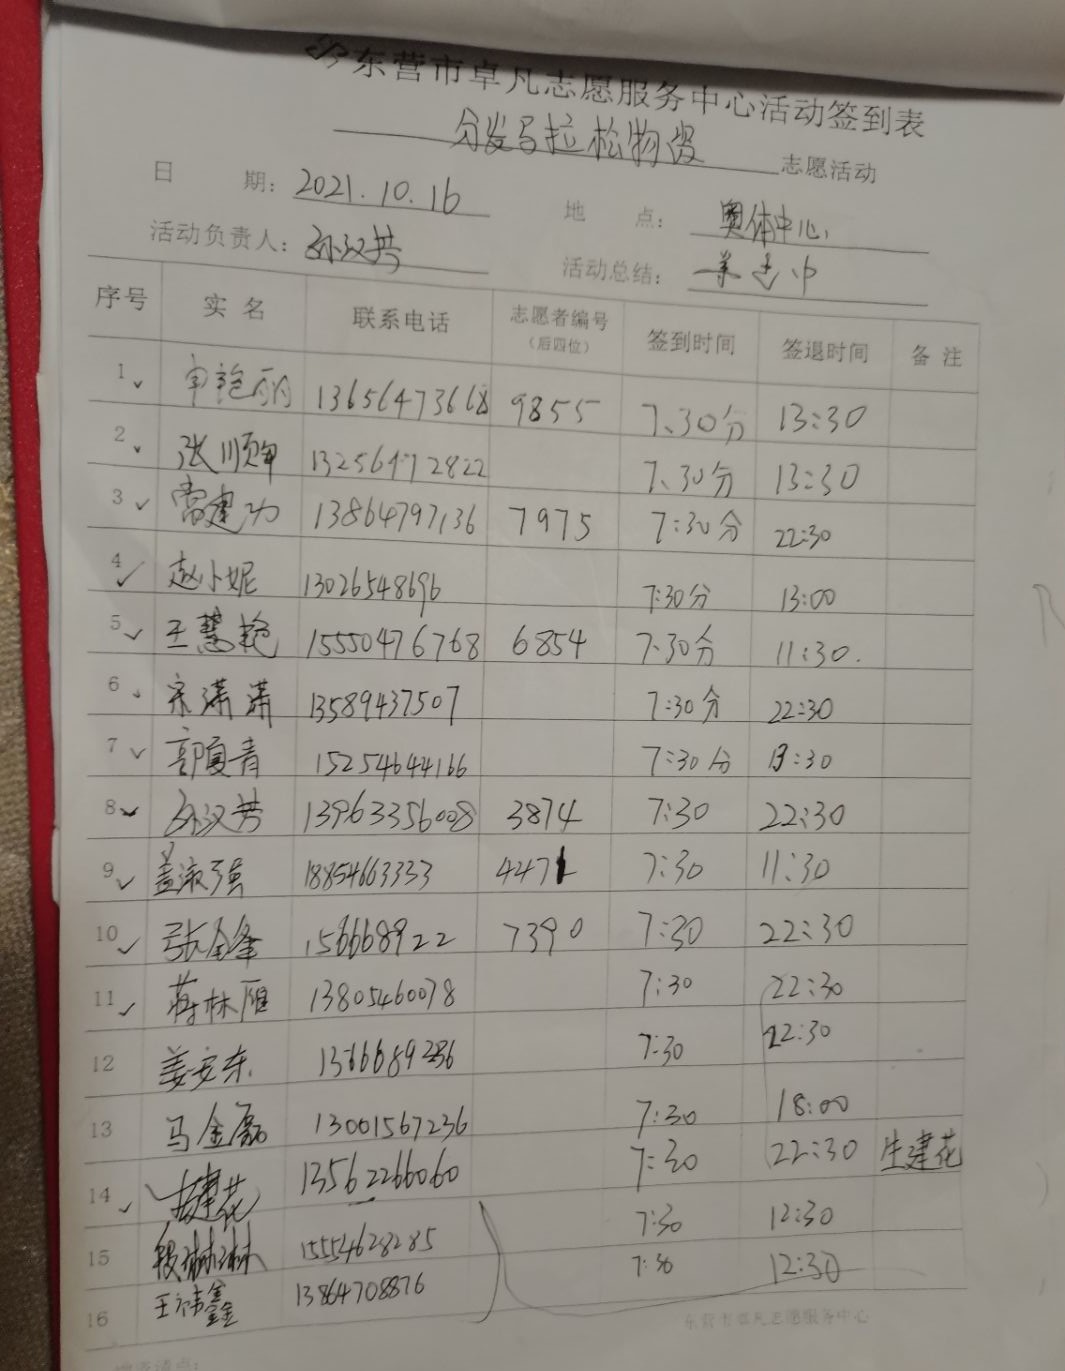 东营市卓凡志愿服务中心活动签到表
分发马拉松物资 志愿活动
日 期: 2021.10.16 地 点: 奥体中心
活动负责人: 孙汉芳 活动总结:
序号 实名 联系电话 志愿者编号 (后四位) 签到时间 签退时间 备注
1 申艳丽 13656473668 9855 7.30分 13:30
2 张顺 13256472822 7.30分 13:30
3 常建功 13864797136 7975 7:30分 22:30
4 赵小妮 13026548696 7:30分 13:00
5 王慧艳 15550476768 6854 7:30分 11:30.
6 宋潇潇 13589437507 7:30分 22:30
7 郭夏青 15254644166 7:30分 :30
8 孙汉芳 13963356008 3874 7:30 22:30
9 盖淑强 18854663333 4471 7:30 11:30
10 张金峰 156668922 7390 7:30 22:30
11 蒋林雁 13805460078 7:30 22:30
12 姜安东 7:30 12:30
13 马金磊 13001567236 7:30 18:00
14 生建花 13562266060 7:30 22:30 生建花
15 段琳琳 15554628285 7:30 12:30
16 王祎鑫 13864708876 7:30 12:30
东营市卓凡志愿服务中心